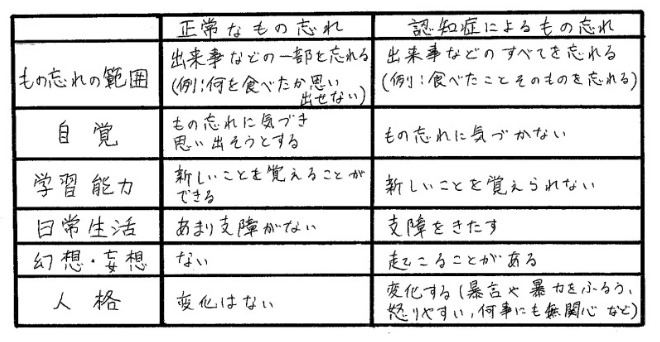 正常なもの忘れ
認知症によるもの忘れ
もの忘れの範囲
出来事などの一部を忘れる
(例:何を食べたか思い
出せない)
出来事などのすべてを忘れる
(例:食べたことそのものを忘れる)
自覚
もの忘れに気づき
思い出そうとする
もの忘れに気づかない
学習能力
新しいことを覚えることが
できる
新しいことを覚えられない
日常生活
あまり支障がない
支障をきたす
幻想・妄想
ない
起こることがある
人格
変化はない
変化する(暴言や暴力をふるう、
怒りやすい,何事にも無関心など)